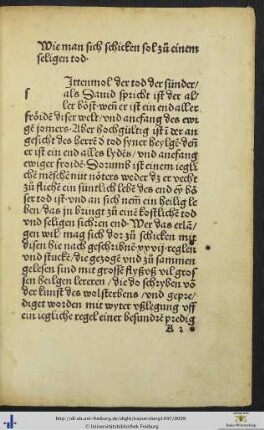 Wie man sich schicken sol zů einem
seligen tod.
s
Ittenmol der tod der sünder/
als Dauid spricht ist der al/
ler böst. weñ er ist ein end aller
fröide diser welt/ vnd anefang des ewi
gẽ jomers. Aber hochgültig ist ĩ der an
gesicht des herrẽ d̕ tod syner heylgẽ. deñ
er ist ein end alles lydẽs/ vnd anefang
ewiger froide. Dorumb ist einem iegli
chẽ mẽschẽ nit nöters weder dz er recht
zů fliehẽ ein süntlich lebẽ des end ey bö
ser tod ist. vnd an sich nem ein heilig le
ben/ das jn bringt zů einẽ kostlichẽ tod
vnd seligen sichren end. Wer das erlā/
gen will mag sich dor zů schicken mit
disen hie nach geschribnẽ .xxvij. reglen
vnd stuckẽ/ die gezogẽ vnd zů sammen
gelesen sind mit grossẽ flyß vß vil gros
sen heilgen lereren/ die do schryben võ
der kunst des wolsterbens/ vnd gepre/
diget worden mit wyter vßlegung vff
ein iegliche regel einer besundrẽ predig
A 2
http://dl.ub.uni-freiburg.de/diglit/
© Universitätsbibliothek Freiburg